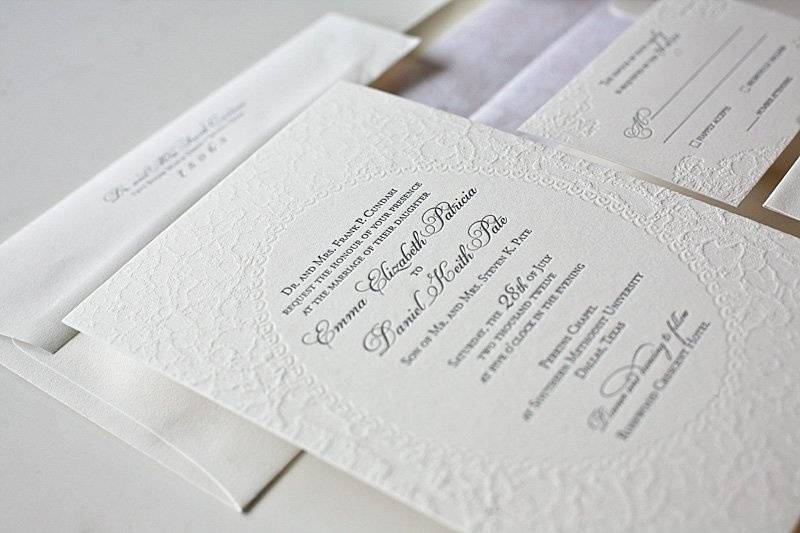 Dr. and Mrs. Frank P. Cundari
request the honour of your presence
at the marriage of their daughter
Emma Elizabeth Patricia
to
Daniel Keith Pate
Son of Mr. and Mrs. Steven K. Pate
Saturday, the 28th of July
two thousand twelve
at five o'clock in the evening
Perkins Chapel
at Southern Methodist University
Dallas, Texas
Dinner and dancing to follow
Rosewood Crescent Hotel
Dr. and Mrs. Frank Cundari
75065
M
happily accepts